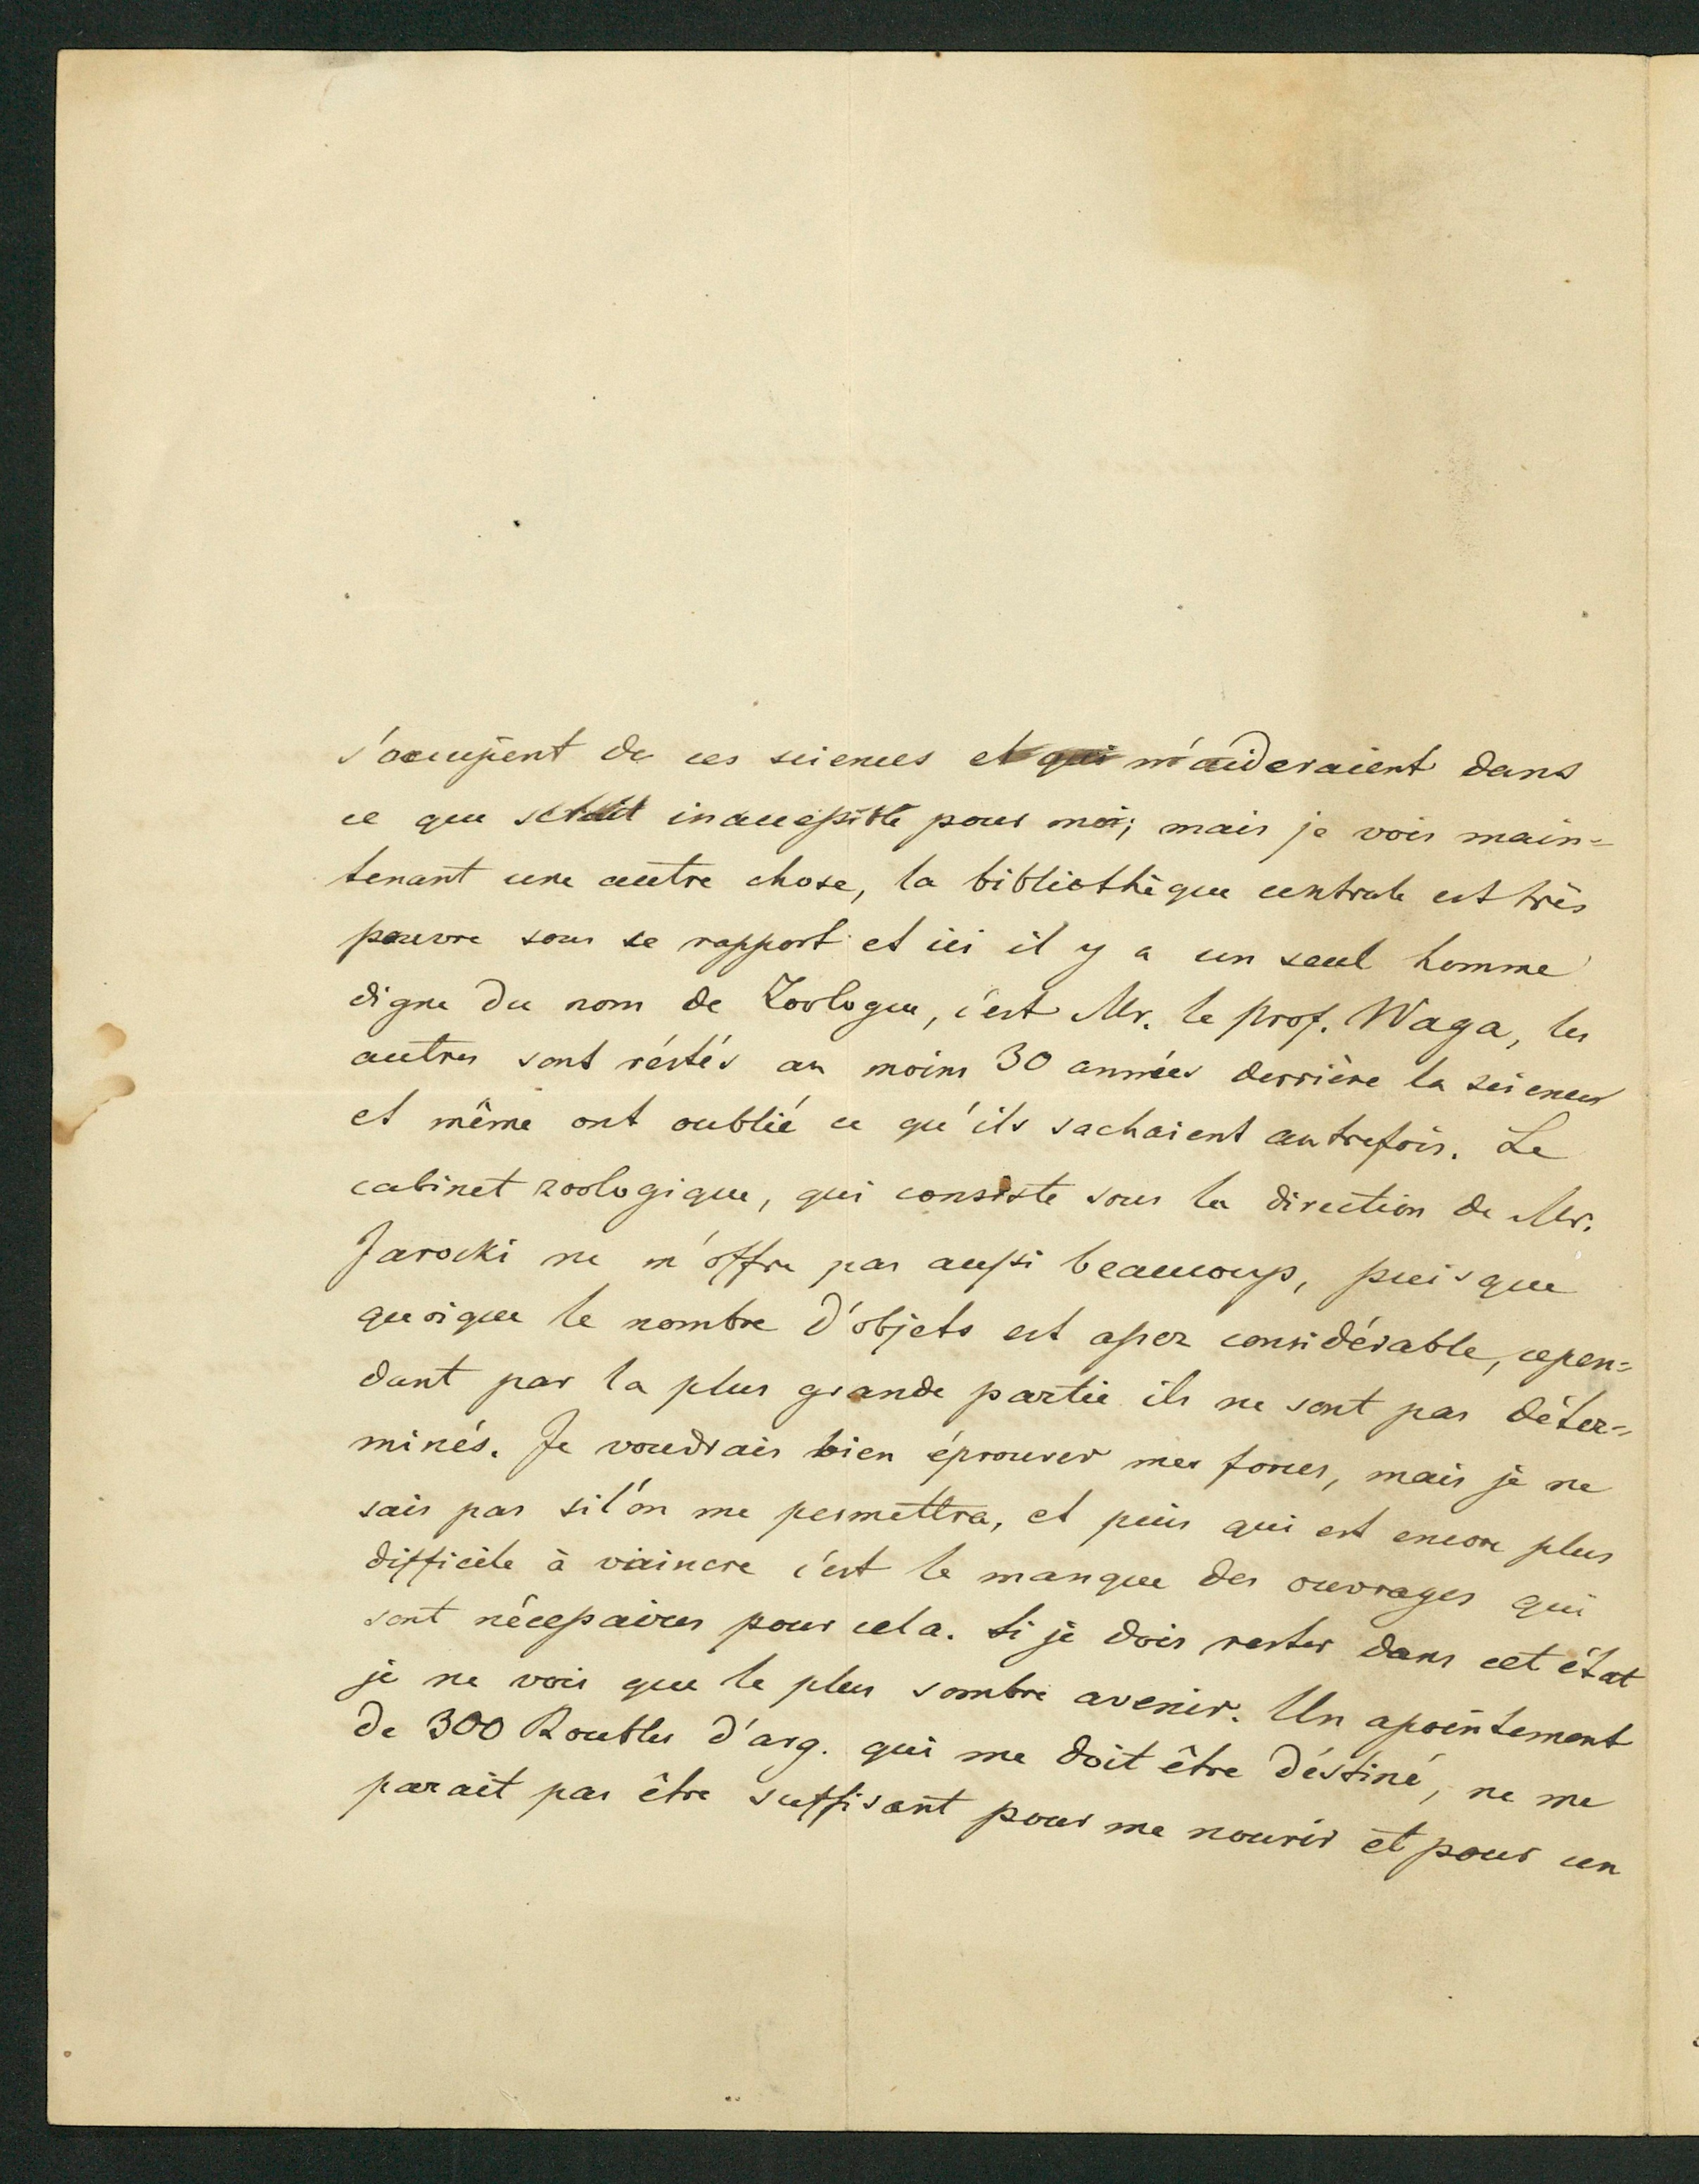 s'occupent de ces sciences et qui m'aideraient dans
ce que serait inaccessible pour moi; mais je vois main=
tenant une autre chose, la bibliothèque centrale est très
pauvre sous ce rapport et ici il y a un seul homme
digne du nom de Zoologue, c'est Mr. le prof. Waga, les
autres sont réstés au moins 30 années derrière la science
et même ont oublié ce qu'ils sachaient autrefois. Le
cabinet zoologique, qui consiste sous la direction de Mr.
Jarocki ne m'offre pas aussi beaucoup, puisque
quoique le nombre d'objets est assez considérable, cepen=
dant par la plus grande partie ils ne sont pas déter=
minés. Je voudrais bien éprouver mes forces, mais je ne
sais pas si l'on me permettra, et puis qui est encore plus
difficile à vaincre c'est le manque des ouvrages qui
sont nécessaires pour cela. Si je dois rester dans cet état
je ne vois que le plus sombre avenir. Un apointement
de 300 Roubles d'arg. qui me doit être déstiné, ne me
parait pas être suffisant pour me nourir et pour un